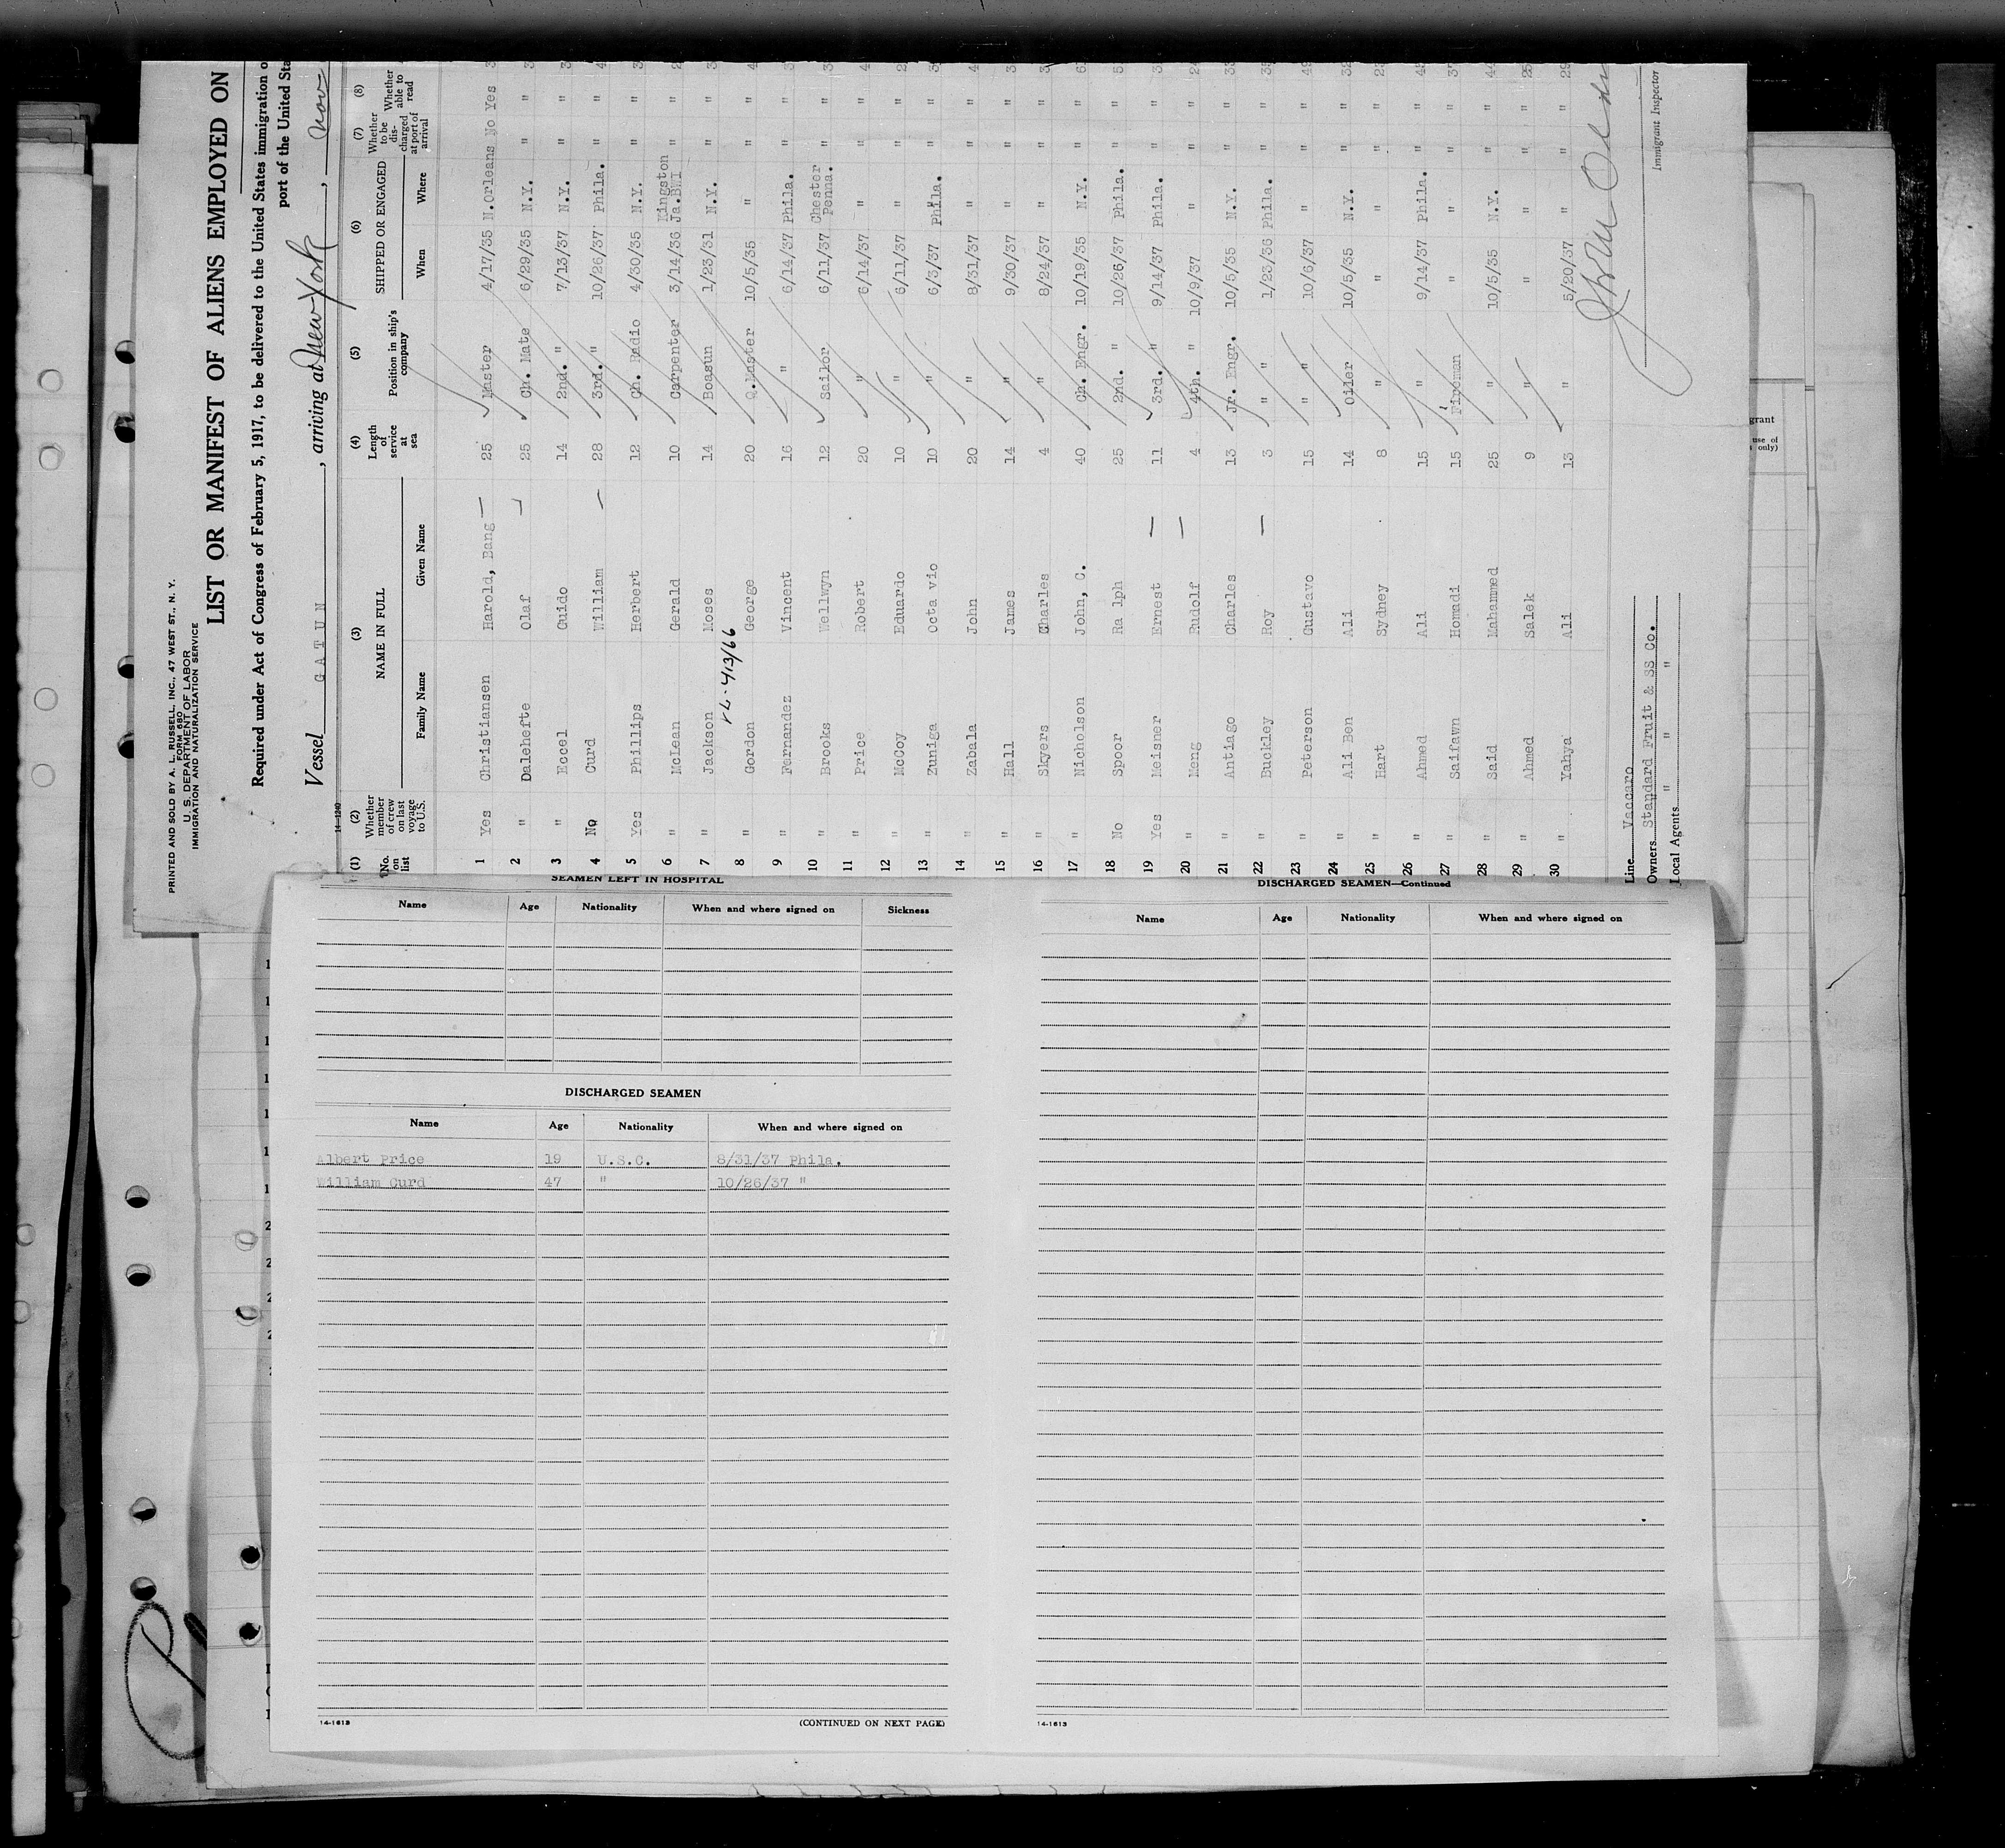 PRINTED AND SOLD BY A. L. RUSSELL, INC., 47 WEST ST., N. Y.
FORM 680
U. S. DEPARTMENT OF LABOR
IMMIGRATION AND NATURALIZATION SERVICE
LIST OR MANIFEST OF ALIENS EMPLOYED ON
Required under Act of Congress of February 5, 1917, to be delivered to the United States immigration
port of the United
Vessel GATUN, arriving at New York, Nov
14-1240
(1) (2) (3) (4) (5) (6) (7) (8)
No. on list Whether member of crew on last voyage to U.S. NAME IN FULL Length of service at sea Position in ship's company SHIPPED OR ENGAGED Whether to be discharged at port of arrival Whether able to read
Family Name Given Name When Where
1 Yes Christiansen Harold, Bang 25 Master 4/17/35 N.Orleans No Yes
2 " Dalehefte Olaf 25 Ch. Mate 6/29/35 N.Y. " "
3 " Eccel Guido 14 2nd. " 7/13/37 N.Y. " "
4 No Curd William 28 3rd. " 10/26/37 Phila. " "
5 Yes Phillips Herbert 12 Ch. Radio 4/30/35 N.Y. " "
6 " McLean Gerald 10 Carpenter 3/14/36 Kingston Ja.BWI " "
7 " Jackson Moses 14 Boasun 1/23/31 N.Y. " "
8 " Gordon George 20 Q.Master 10/5/35 " " "
9 " Fernandez Vincent 16 " 6/14/37 Phila. " "
10 " Brooks Wellwyn 12 Sailor 6/11/37 Chester Penna. " "
11 " Price Robert 20 " 6/14/37 " " "
12 " McCoy Eduardo 10 " 6/11/37 " " "
13 " Zuniga Octa vio 10 " 6/3/37 Phila. " "
14 " Zabala John 20 " 8/31/37 " " "
15 " Hall James 14 " 9/30/37 " " "
16 " Skyers Charles 4 " 8/24/37 " " "
17 " Nicholson John, C. 40 Ch. Engr. 10/19/35 N.Y. " "
18 No Spoor Ra lph 25 2nd. " 10/26/37 Phila. " "
19 Yes Meisner Ernest 11 3rd. " 9/14/37 Phila. " "
20 " Meng Rudolf 4 4th. " 10/9/37 " " "
21 " Antiago Charles 13 Jr. Engr. 10/5/35 N.Y. " "
22 " Buckley Roy 3 " " 1/23/36 Phila. " "
23 " Peterson Gustavo 15 " " 10/6/37 " " "
24 " Ali Ben Ali 14 Oiler 10/5/35 N.Y. " "
25 " Hart Sydney 8 " " " " "
26 " Ahmed Ali 15 " 9/14/37 Phila. " "
27 " Saifawn Homadi 15 Fireman " " " "
28 " Said Mahammed 25 " 10/5/35 N.Y. " "
29 " Ahmed Salek 9 " " " " "
30 " Yahya Ali 13 " 5/20/37 " " "
Line Vaccaro
Owners Standard Fruit & SS Co.
Local Agents " " "
Immigrant Inspector
SEAMEN LEFT IN HOSPITAL
Name Age Nationality When and where signed on Sickness
DISCHARGED SEAMEN
Name Age Nationality When and where signed on
Albert Price 19 U.S.C. 8/31/37 Phila.
William Curd 47 " 10/26/37 "
14-1613 (CONTINUED ON NEXT PAGE)
DISCHARGED SEAMEN—Continued
Name Age Nationality When and where signed on
14-1613